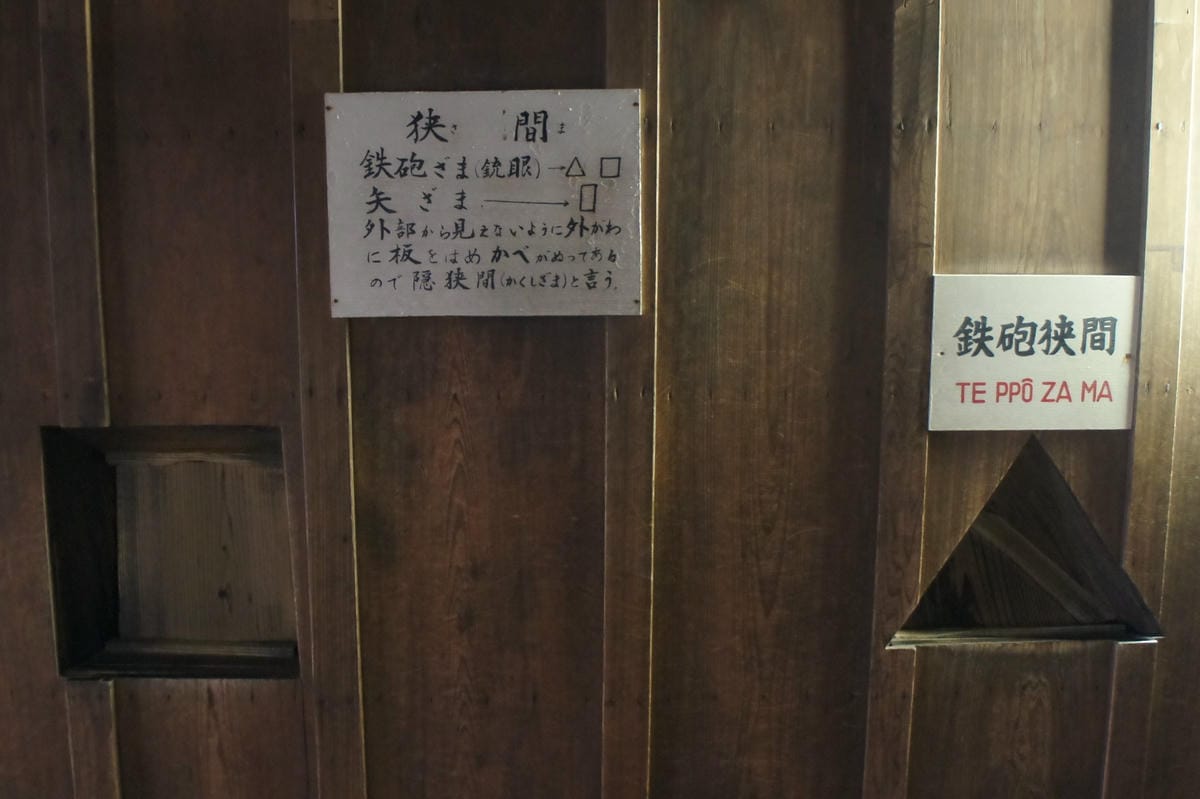 狭さ 間ま
鉄砲ざま(銃眼)→△ □
矢ざま→▯
外部から見えないように外がわ
に板をはめかべがぬってある
ので隠狭間(かくしざま)と言う。
鉄砲狭間
TE PPÔ ZA MA